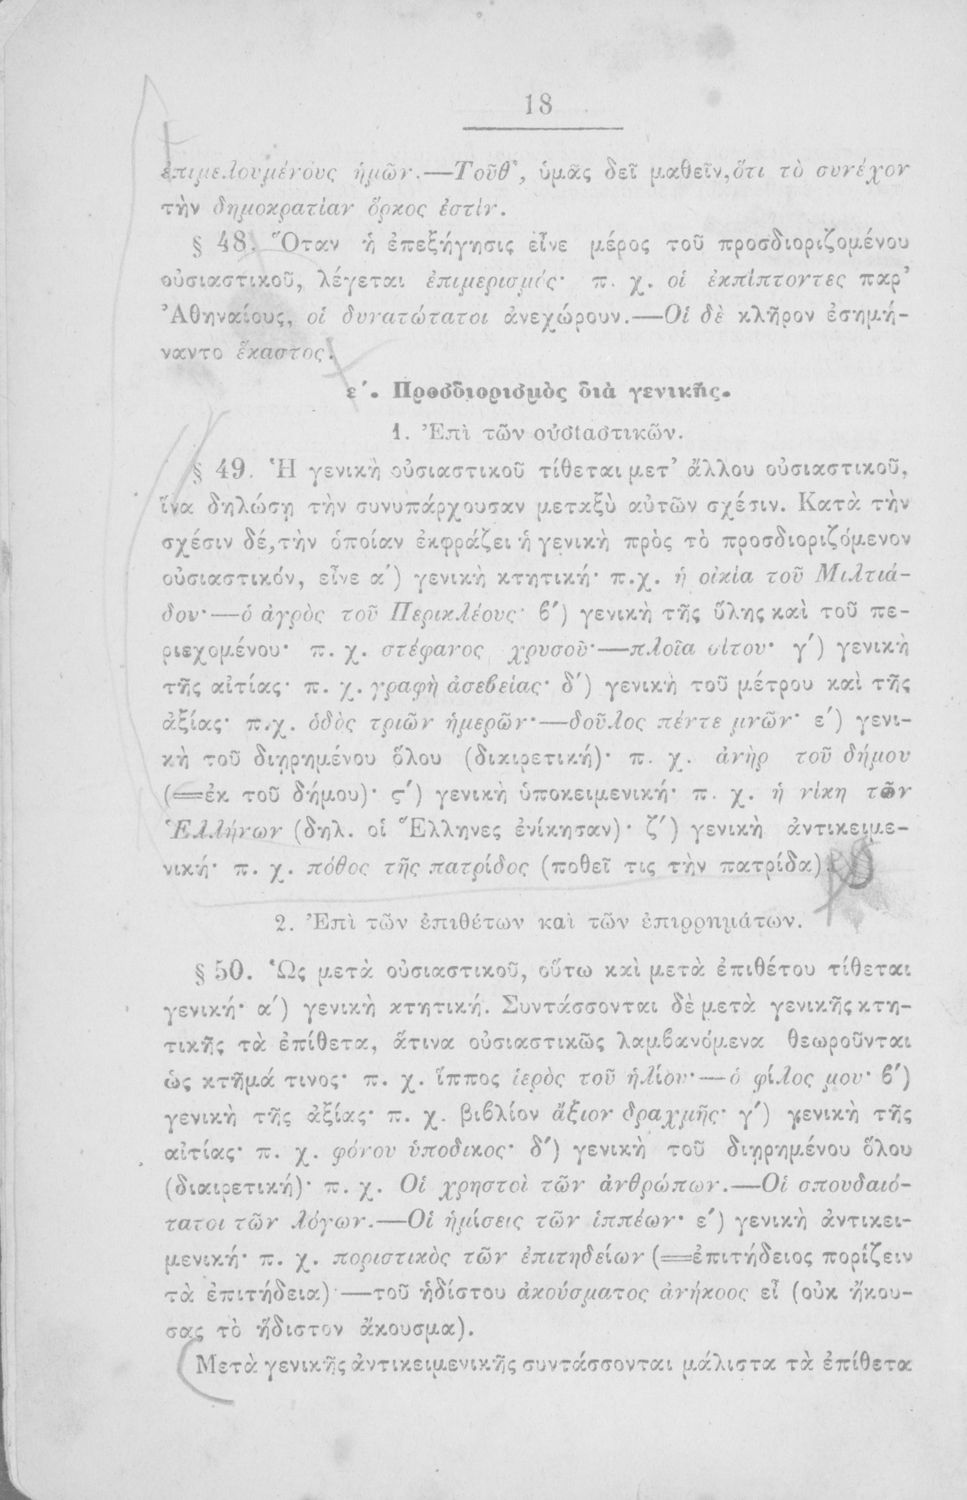 18
ἐπιμελουμένους ἡμῶν.—Τοῦθ', ὑμᾶς δεῖ μαθεῖν, ὅτι τὸ συνέχον
τὴν δημοκρατίαν ὅρκος ἐστίν.
§ 48. Ὅταν ἡ ἐπεξήγησις εἶνε μέρος τοῦ προσδιοριζομένου
οὐσιαστικοῦ, λέγεται ἐπιμερισμός· π. χ. οἱ ἐκπίπτοντες παρ'
Ἀθηναίους, οἱ δυνατώτατοι ἀνεχώρουν.—Οἱ δὲ κλῆρον ἐσημή-
ναντο ἕκαστος.
ε΄. Προσδιορισμὸς διὰ γενικῆς.
1. Ἐπὶ τῶν οὐσιαστικῶν.
§ 49. Ἡ γενικὴ οὐσιαστικοῦ τίθεται μετ' ἄλλου οὐσιαστικοῦ,
ἵνα δηλώσῃ τὴν συνυπάρχουσαν μεταξὺ αὐτῶν σχέσιν. Κατὰ τὴν
σχέσιν δέ, τὴν ὁποίαν ἐκφράζει ἡ γενικὴ πρὸς τὸ προσδιοριζόμενον
οὐσιαστικόν, εἶνε α΄) γενικὴ κτητική· π.χ. ἡ οἰκία τοῦ Μιλτιά-
δου·—ὁ ἀγρὸς τοῦ Περικλέους· β΄) γενικὴ τῆς ὕλης καὶ τοῦ πε-
ριεχομένου· π. χ. στέφανος χρυσοῦ·—πλοῖα σίτου· γ΄) γενικὴ
τῆς αἰτίας· π. χ. γραφὴ ἀσεβείας· δ΄) γενικὴ τοῦ μέτρου καὶ τῆς
ἀξίας· π.χ. ὁδὸς τριῶν ἡμερῶν·—δοῦλος πέντε μνῶν· ε΄) γενι-
κὴ τοῦ διῃρημένου ὅλου (διαιρετική)· π. χ. ἀνὴρ τοῦ δήμου
(=ἐκ τοῦ δήμου)· ϛ΄) γενικὴ ὑποκειμενική· π. χ. ἡ νίκη τῶν
Ἑλλήνων (δηλ. οἱ Ἕλληνες ἐνίκησαν)· ζ΄) γενικὴ ἀντικειμε-
νική· π. χ. πόθος τῆς πατρίδος (ποθεῖ τις τὴν πατρίδα).
2. Ἐπὶ τῶν ἐπιθέτων καὶ τῶν ἐπιρρημάτων.
§ 50. Ὡς μετὰ οὐσιαστικοῦ, οὕτω καὶ μετὰ ἐπιθέτου τίθεται
γενική· α΄) γενικὴ κτητική. Συντάσσονται δὲ μετὰ γενικῆς κτη-
τικῆς τὰ ἐπίθετα, ἅτινα οὐσιαστικῶς λαμβανόμενα θεωροῦνται
ὡς κτῆμά τινος· π. χ. ἵππος ἱερὸς τοῦ ἡλίου·—ὁ φίλος μου· β΄)
γενικὴ τῆς ἀξίας· π. χ. βιβλίον ἄξιον δραχμῆς· γ΄) γενικὴ τῆς
αἰτίας· π. χ. φόνου ὑπόδικος· δ΄) γενικὴ τοῦ διῃρημένου ὅλου
(διαιρετική)· π. χ. Οἱ χρηστοὶ τῶν ἀνθρώπων.—Οἱ σπουδαιό-
τατοι τῶν λόγων.—Οἱ ἡμίσεις τῶν ἱππέων· ε΄) γενικὴ ἀντικει-
μενική· π. χ. ποριστικὸς τῶν ἐπιτηδείων (=ἐπιτήδειος πορίζειν
τὰ ἐπιτήδεια)·—τοῦ ἡδίστου ἀκούσματος ἀνήκοος εἶ (οὐκ ἤκου-
σας τὸ ἥδιστον ἄκουσμα).
Μετὰ γενικῆς ἀντικειμενικῆς συντάσσονται μάλιστα τὰ ἐπίθετα